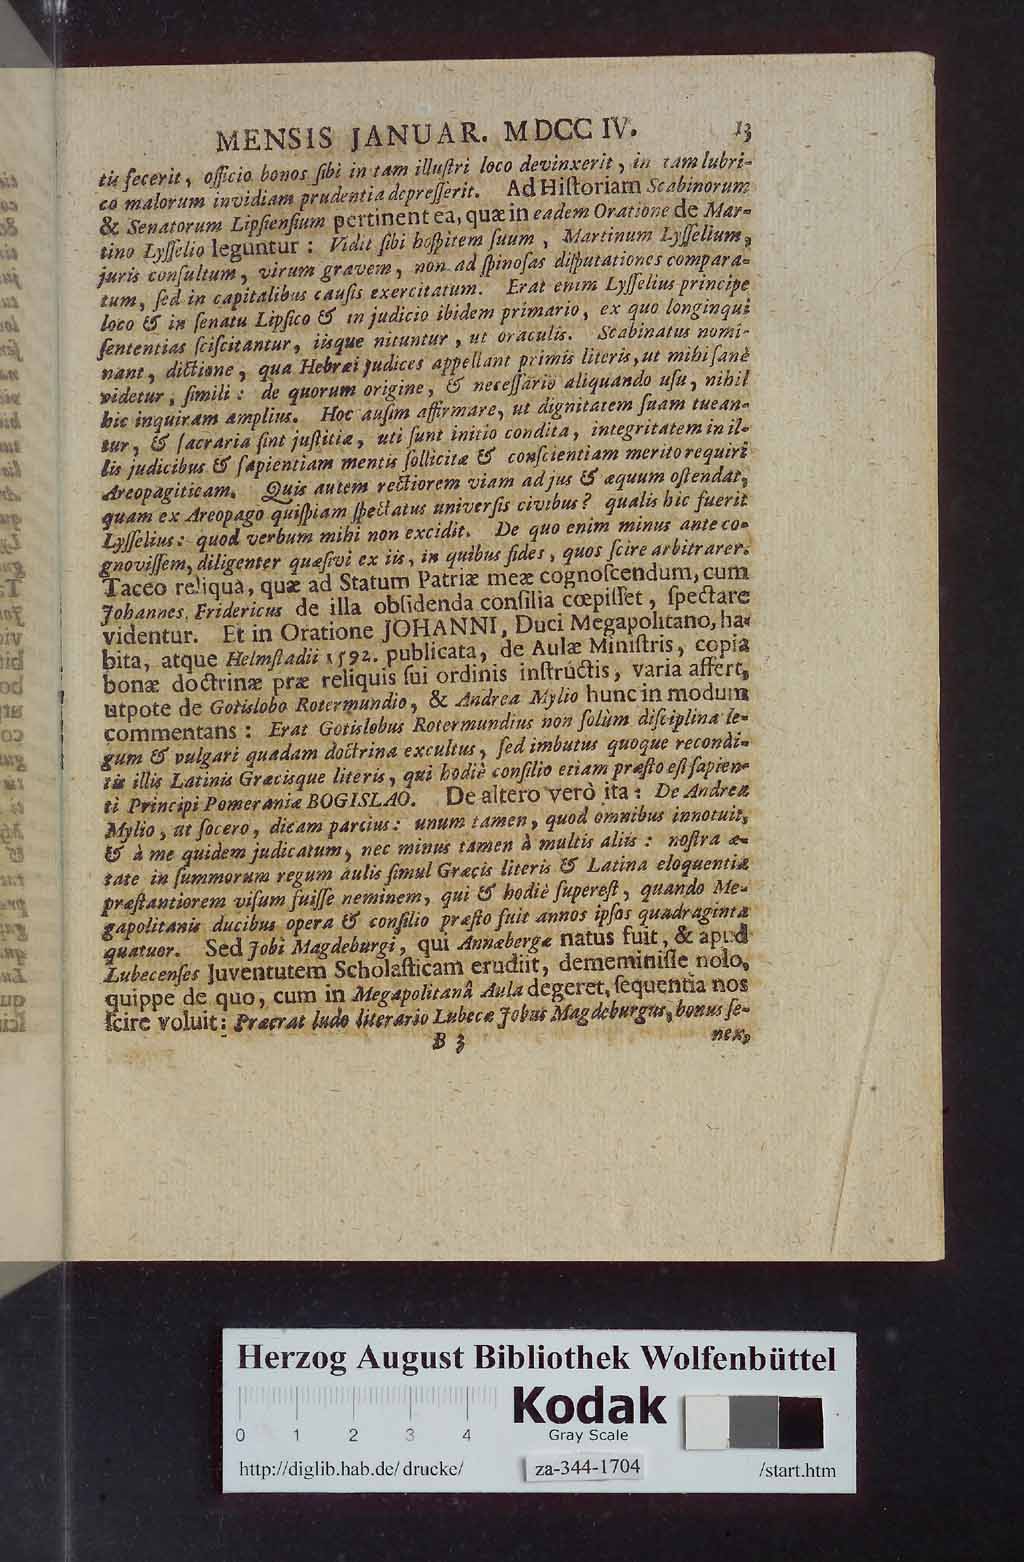 MENSIS JANUAR. MDCC IV. 13
tis fecerit, officio bonos ſibi in tam illuſtri loco devinxerit, in tam lubri-
co malorum invidiam prudentia depreſſerit. Ad Hiſtoriam Scabinorum
& Senatorum Lipſienſium pertinent ea, quæ in eadem Oratione de Mar-
tino Lyſſelio leguntur : Vidit ſibi hoſpitem ſuum, Martinum Lyſſelium,
juris conſultum, virum gravem, non ad ſpinoſas diſputationes compara-
tum, ſed in capitalibus cauſis exercitatum. Erat enim Lyſſelius principe
loco & in ſenatu Lipſico & in judicio ibidem primario, ex quo longinqui
ſententias ſciſcitantur, iisque nituntur, ut oraculis. Scabinatus nomi-
nant, dictione, qua Hebræi judices appellant primis literis, ut mihi ſanè
videtur, ſimili : de quorum origine, & neceſſario aliquando uſu, nihil
hic inquiram amplius. Hoc auſim affirmare, ut dignitatem ſuam tuean-
tur, & ſacraria ſint juſtitiæ, uti ſunt initio condita, integritatem in il-
lis judicibus & ſapientiam mentis ſollicitæ & conſcientiam merito requiri
Areopagiticam. Quis autem rectiorem viam ad jus & æquum oſtendat,
quam ex Areopago quiſpiam ſpectatus univerſis civibus? qualis hic fuerit
Lyſſelius: quod verbum mihi non excidit. De quo enim minus ante co-
gnoviſſem, diligenter quæſivi ex iis, in quibus fides, quos ſcire arbitrarer.
Taceo reliqua, quæ ad Statum Patriæ meæ cognoſcendum, cum
Johannes Fridericus de illa obſidenda conſilia cœpiſſet, ſpectare
videntur. Et in Oratione JOHANNI, Duci Megapolitano, ha-
bita, atque Helmſtadii 1592. publicata, de Aulæ Miniſtris, copia
bonæ doctrinæ præ reliquis ſui ordinis inſtructis, varia affert,
utpote de Gotislobo Rotermundio, & Andrea Mylio hunc in modum
commentans : Erat Gotislobus Rotermundius non ſolùm diſciplina le-
gum & vulgari quadam doctrina excultus, ſed imbutus quoque recondi-
tis illis Latinis Græcisque literis, qui hodiè conſilio etiam præſto eſt ſapien-
ti Principi Pomeraniæ BOGISLAO. De altero verò ita : De Andrea
Mylio, ut ſocero, dicam parcius : unum tamen, quod omnibus innotuit,
& à me quidem judicatum, nec minus tamen à multis aliis : noſtra æ-
tate in ſummorum regum aulis ſimul Græcis literis & Latina eloquentia
præſtantiorem viſum fuiſſe neminem, qui & hodiè ſupereſt, quando Me-
gapolitanis ducibus opera & conſilio præſto fuit annos ipſos quadraginta
quatuor. Sed Jobi Magdeburgi, qui Annæbergæ natus fuit, & apud
Lubecenſes Juventutem Scholaſticam erudiit, dememiniſſe nolo,
quippe de quo, cum in Megapolitanâ Aula degeret, ſequentia nos
ſcire voluit: Præerat ludo literario Lubecæ Jobus Magdeburgus, bonus ſe-
B 3 nex,
Herzog August Bibliothek Wolfenbüttel
0 1 2 3 4
Kodak
Gray Scale
http://diglib.hab.de/drucke/ za-344-1704 /start.htm